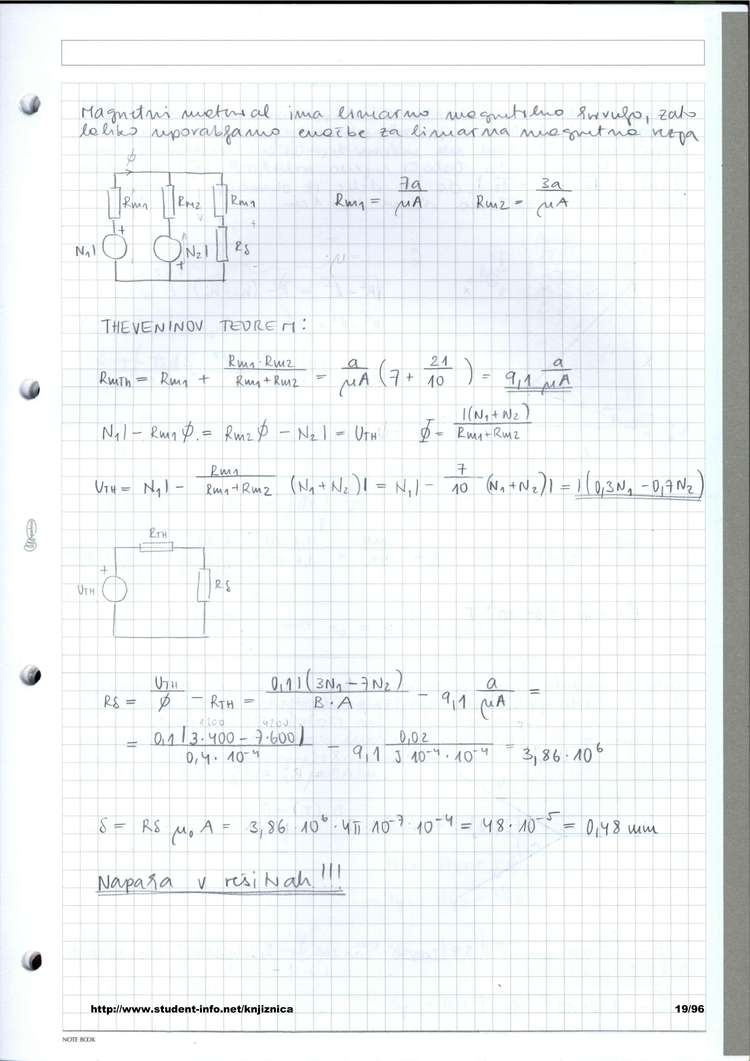 Magnetni material ima linearno magnetilno krivuljo, zato
lahko uporabljamo enačbe za linearna magnetna vezja
ϕ
Rm1
Rm2
Rm1
+
N1I
N2I
+
Rδ
Rm1 = 7a / μA
Rm2 = 3a / μA
THEVENINOV TEOREM:
RmTh = Rm1 + Rm1·Rm2 / Rm1+Rm2 = a / μA (7 + 21 / 10) = 9,1 a / μA
N1I − Rm1ϕ = Rm2ϕ − N2I = UTH
ϕ = I(N1+N2) / Rm1+Rm2
UTH = N1I − Rm1 / Rm1+Rm2 (N1+N2)I = N1I − 7 / 10 (N1+N2)I = I(0,3N1 − 0,7N2)
RTH
+
UTH
Rδ
Rδ = UTH / ϕ − RTH = 0,1I(3N1 − 7N2) / B·A − 9,1 a / μA =
1200 4200
= 0,1(3·400 − 7·600) / 0,4·10⁻⁴ − 9,1 0,02 / J 10⁻⁴·10⁻⁴ = 3,86·10⁶
δ = Rδ μ0 A = 3,86·10⁶·4π 10⁻⁷·10⁻⁴ = 48·10⁻⁵ = 0,48 mm
Napaka v rešitvah!!!
http://www.student-info.net/knjiznica
19/96
NOTE BOOK